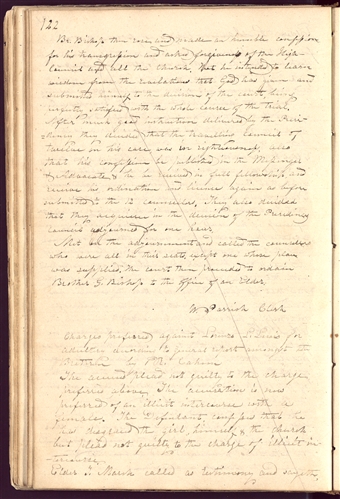 122
Br. Bishop then rose and made an humble confession
for his transgression and asked forgiveness of the High
Council and all the Church, that he intended to learn
wisdom from the that God has given and
submitted himself to the decision of the court, being
satisfied with the whole course of the trial,
After much good instruction delivered by the Presi-
dency they decided that the travelling Council of
twelve on his case, was in righteousness, also
that his confession be published in the Messenger
& Advocate & he be received in full fellowship and
receive his ordination and license again as before
submitted to the 12 counsellors, They also decided
that they acquiesce in the decision of the Presidency
Council adjourned for one hour,
Met on the adjournment and called the counselors
who were all in their seats, except one whose place
was supplied, the court then proceeded to ordain
Brother G. Bishop to the office of an Elder,
W. Parrish Clerk
Charges preferred against Lorenzo L. Lewis for
adultery according to general report amongst the
Brethren by
The accused plead not guilty to the charge
preferred above, The accusation is one
preferred of an illicit intercourse with a
female. The Defendant, confess that he
has disgraced the girl, himself, & the church
but plead not guilty to the charge of illicit in-
tercourse.
Elder T. Marsh called as testimony and sayeth,